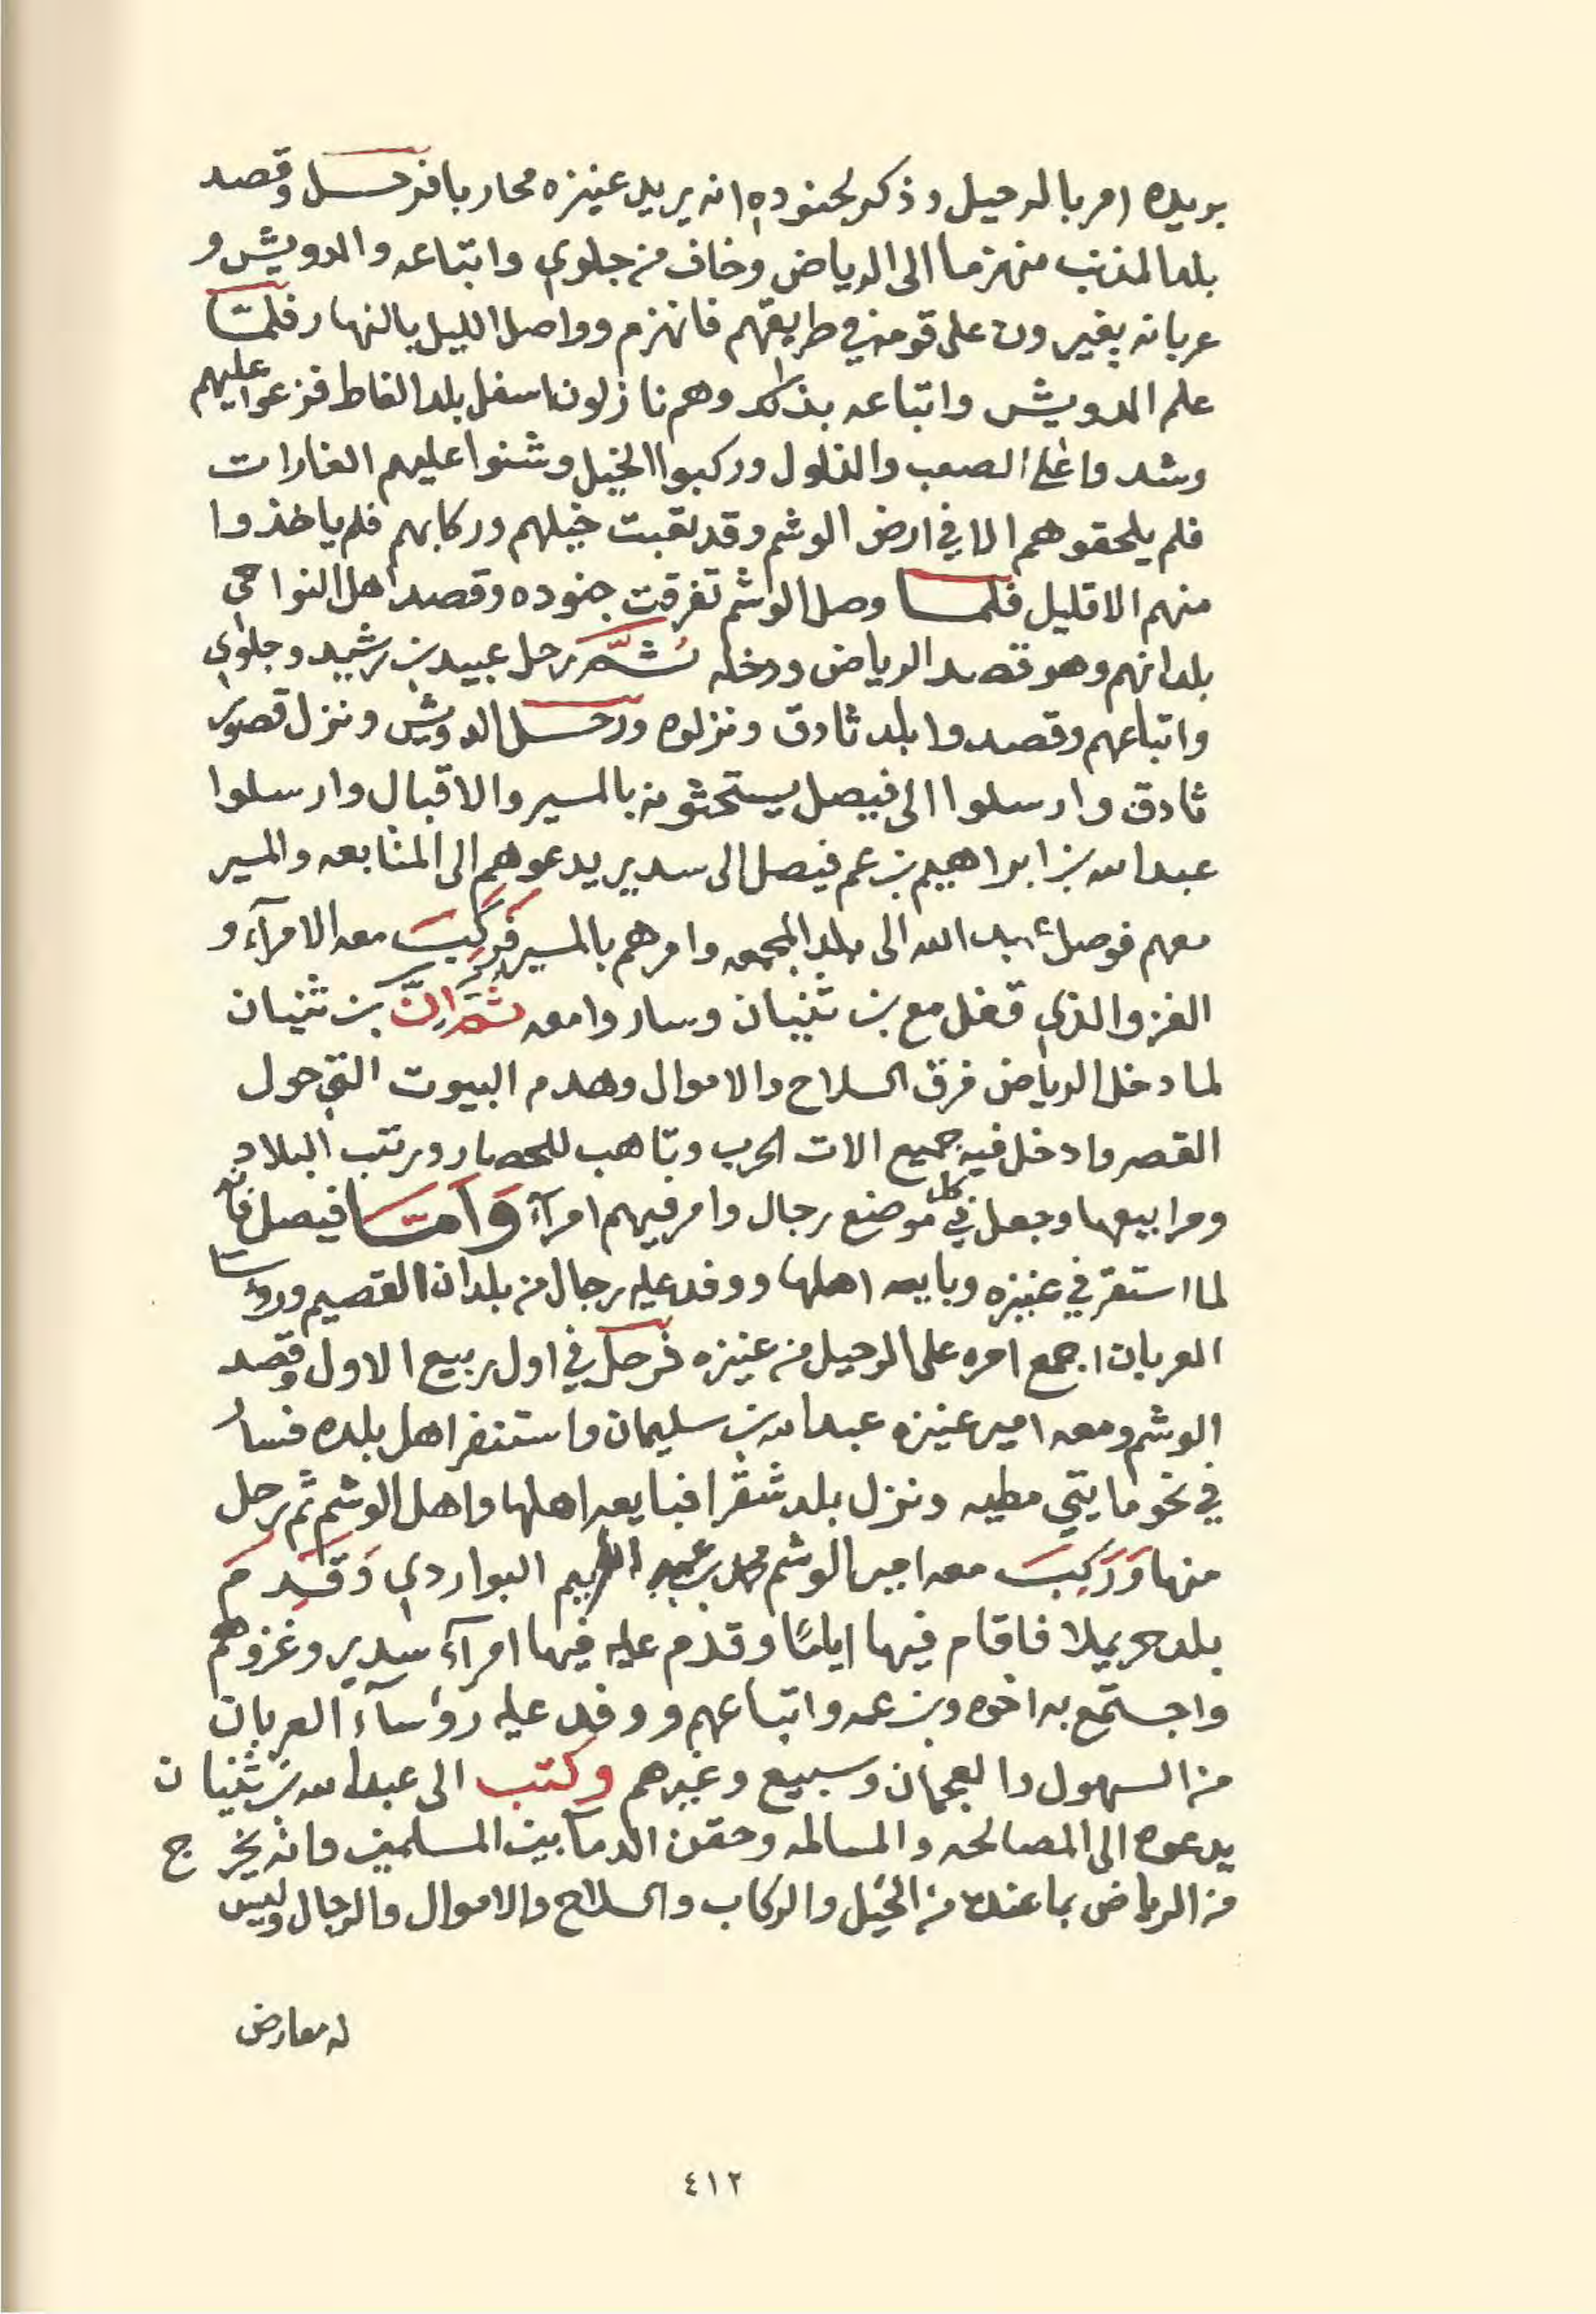 بريده امر بالرحيل وذكر لجنوده انه يريد عنيزه محاربا فرحل وقصد
بلد المذنب منهزما الى الرياض وخاف من جلوي واتباعه والدويش و
عربانه يغيرون على قومه في طريقهم فانهزم وواصل الليل بالنهار فلمّا
علم الدويش واتباعه بذلك وهم نازلون اسفل بلد الغاط فزعوا عليهم
وشدوا على الصعب والذلول وركبوا الخيل وشنوا عليهم الغارات
فلم يلحقوهم الا في ارض الوشم وقد تعبت خيلهم وركابهم فلم ياخذوا
منهم الا قليل فلما وصل الوشم تفرقت جنوده وقصد اهل النواحي
بلدانهم وهو قصد الرياض ودخله ثُمَّ رحل عبيد بن رشيد وجلوي
واتباعهم وقصدوا بلد ثادق ونزلوه ورحل الدويش ونزل قصور
ثادق وارسلوا الى فيصل يستحثونه بالمسير والاقبال وارسلوا
عبدالله بن ابراهيم بن عم فيصل الى سدير يدعوهم الى المتابعه والمسير
معهم فوصل عبد الله الى بلد المجمعه وامرهم بالمسير فَرَكِبَ معه الامرآء و
الغزو الذي قفل مع بن ثنيان وساروا معه ثُمَّ اِنَّ بن ثنيان
لما دخل الرياض فرق السلاح والاموال وهدم البيوت التي حول
القصر وادخل فيه جميع الات الحرب وتاهب للحصار ورتب البلاد
ومرابيعها وجعل في كل موضع رجال وامر فيهم امرآء وَاَمَّا فيصل فانه
لما استقر في عنيزه وبايعه اهلها ووفد عليه رجال من بلدان القصيم ورؤسا
العربان اجمع امره على الرحيل من عنيزه فرحل في اول ربيع الاول وقصد
الوشم ومعه امير عنيزه عبدالله بن سليمان واستنفر اهل بلده فسار
في نحو مايتي مطيه ونزل بلد شقرا فبايعه اهلها واهل الوشم ثم رحل
منها وَرَكِبَ معه امير الوشم محمد بن عبد الكريم البواردي وَقَدِمَ
بلد حريملا فاقام فيها ايامًا وقدم عليه فيها امرآء سدير وغزوهم
واجتمع به اخوه وبن عمه واتباعهم ووفد عليه رؤسآء العربان
من السهول والعجمان وسبيع وغيرهم وكتب الى عبدالله بن ثنيان
يدعوه الى المصالحه والمسالمه وحقن الدمآ بين المسلمين وانه يخرج
من الرياض بما عنده من الخيل والركاب والسلاح والاموال والرجال وليس
له معارض
٤١٢